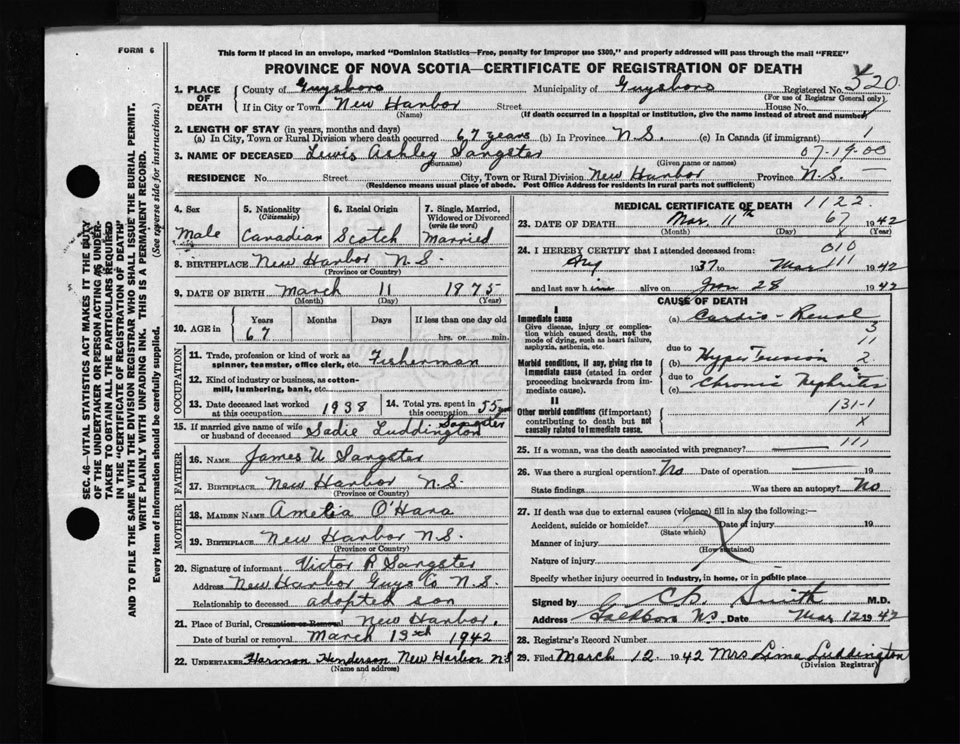 FORM 6
This form if placed in an envelope, marked "Dominion Statistics—Free, penalty for improper use $300," and properly addressed will pass through the mail "FREE"
PROVINCE OF NOVA SCOTIA—CERTIFICATE OF REGISTRATION OF DEATH
1. PLACE OF DEATH
County of Guysboro Municipality of Guysboro Registered No. 520
(For use of Registrar General only)
If in City or Town New Harbor Street House No.
(Name) (If death occurred in a hospital or institution, give the name instead of street and number)
2. LENGTH OF STAY (in years, months and days)
(a) In City, Town or Rural Division where death occurred 67 years (b) In Province N.S. (c) In Canada (if immigrant) 1
3. NAME OF DECEASED Lewis Ashley Sangster 07-19-00
(Surname) (Given name or names)
RESIDENCE No. Street City, Town or Rural Division New Harbor Province N.S.
(Residence means usual place of abode. Post Office Address for residents in rural parts not sufficient)
4. Sex
Male
5. Nationality
(Citizenship)
Canadian
6. Racial Origin
Scotch
7. Single, Married, Widowed or Divorced
(write the word)
Married
8. BIRTHPLACE New Harbor N.S.
(Province or Country)
9. DATE OF BIRTH March 11 1875
(Month) (Day) (Year)
10. AGE in Years Months Days If less than one day old
67 hrs. or min.
OCCUPATION
11. Trade, profession or kind of work as spinner, teamster, office clerk, etc. Fisherman
12. Kind of industry or business, as cotton-mill, lumbering, bank, etc.
13. Date deceased last worked at this occupation 1938
14. Total yrs. spent in this occupation 55 yrs
15. If married give name of wife or husband of deceased Sadie Luddington Sangster
FATHER
16. NAME James W Sangster
17. BIRTHPLACE New Harbor N.S.
(Province or Country)
MOTHER
18. MAIDEN NAME Amelia O'Hara
19. BIRTHPLACE New Harbor N.S.
(Province or Country)
20. Signature of informant Victor R Sangster
Address New Harbor Guys Co N.S.
Relationship to deceased adopted son
21. Place of Burial, Cremation or Removal New Harbor.
Date of burial or removal March 13th 1942
22. UNDERTAKER Harmon Henderson New Harbor N.S
(Name and address)
MEDICAL CERTIFICATE OF DEATH 1122
23. DATE OF DEATH Mar. 11th 67 1942
(Month) (Day) (Year)
24. I HEREBY CERTIFY that I attended deceased from: 010
Aug 1937 to Mar 111 1942
and last saw him alive on Jan 28 1942
CAUSE OF DEATH
I
Immediate cause
Give disease, injury or complication which caused death, not the mode of dying, such as heart failure, asphyxia, asthenia, etc.
(a) Cardio-Renal
3
11
due to
Morbid conditions, if any, giving rise to immediate cause (stated in order proceeding backwards from immediate cause).
(b) Hypertension 2
due to
(c) Chronic Nephritis
II
Other morbid conditions (if important) contributing to death but not causally related to immediate cause.
131-1
X
25. If a woman, was the death associated with pregnancy? 111
26. Was there a surgical operation? No Date of operation 19
State findings Was there an autopsy? No
27. If death was due to external causes (violence) fill in also the following:—
Accident, suicide or homicide? Date of injury 19
(State which)
Manner of injury
(How sustained)
Nature of injury
Specify whether injury occurred in industry, in home, or in public place
Signed by Smith M.D.
Address N.S. Date Mar 12 1942
28. Registrar's Record Number
29. Filed March 12 1942 Mrs Lima Luddington
(Division Registrar)
SEC. 46—VITAL STATISTICS ACT MAKES IT THE DUTY
OF THE UNDERTAKER OR PERSON ACTING AS UNDER-
TAKER TO OBTAIN ALL THE PARTICULARS REQUIRED
IN THE "CERTIFICATE OF REGISTRATION OF DEATH"
AND TO FILE THE SAME WITH THE DIVISION REGISTRAR WHO SHALL ISSUE THE BURIAL PERMIT.
WRITE PLAINLY WITH UNFADING INK. THIS IS A PERMANENT RECORD.
Every item of information should be carefully supplied. (See reverse side for instructions.)